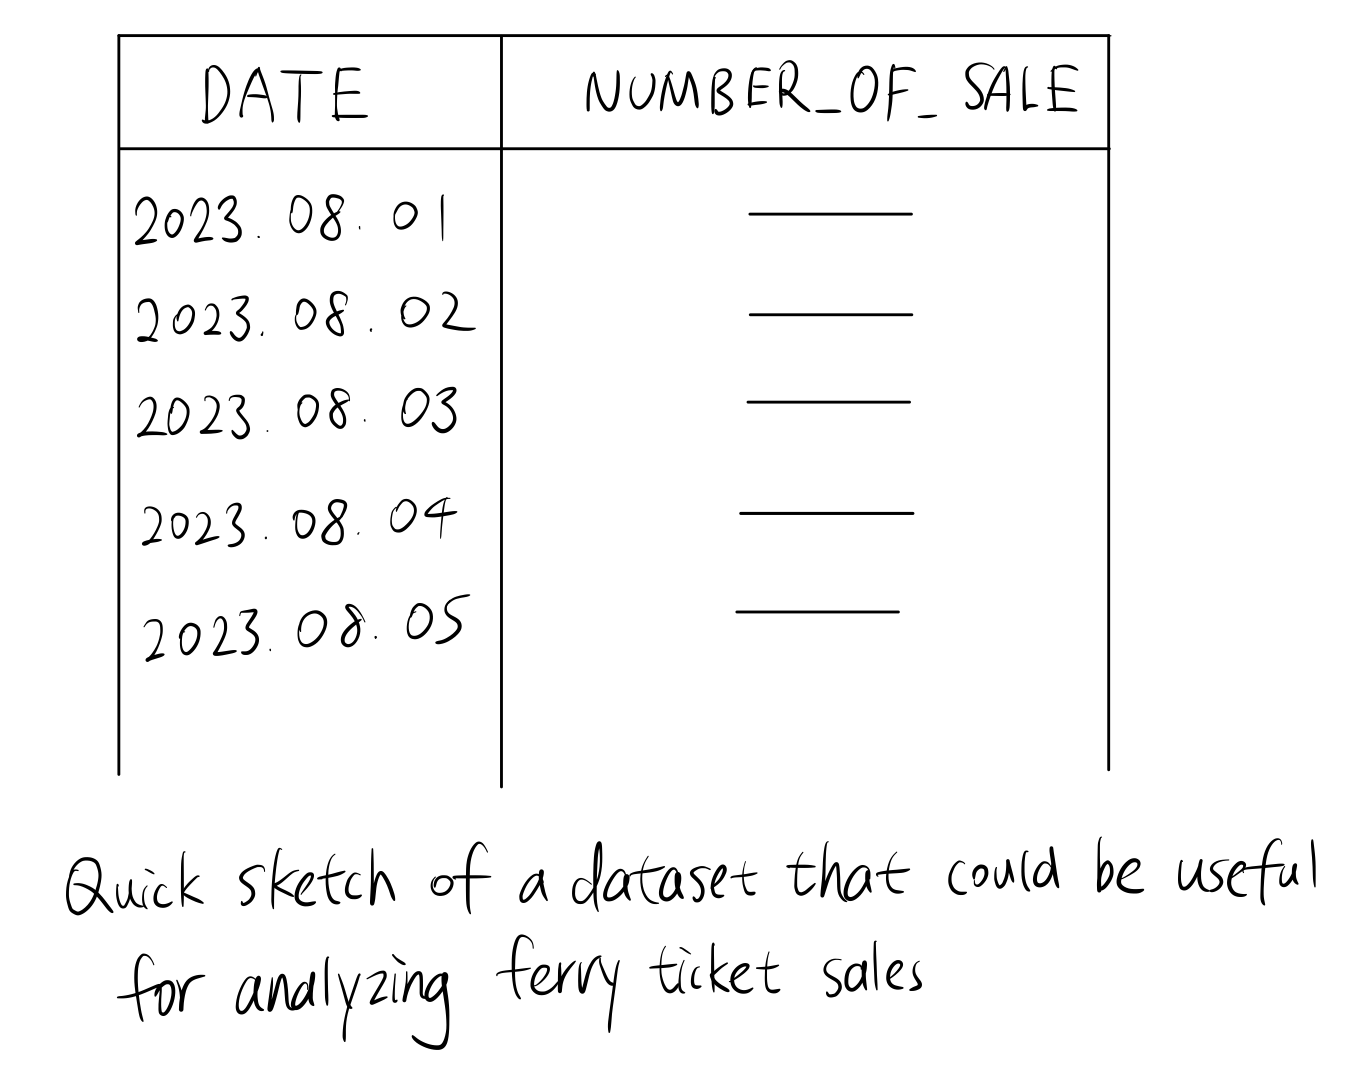 DATE NUMBER_OF_SALE
2023.08.01
2023.08.02
2023.08.03
2023.08.04
2023.08.05
Quick sketch of a dataset that could be useful
for analyzing ferry ticket sales